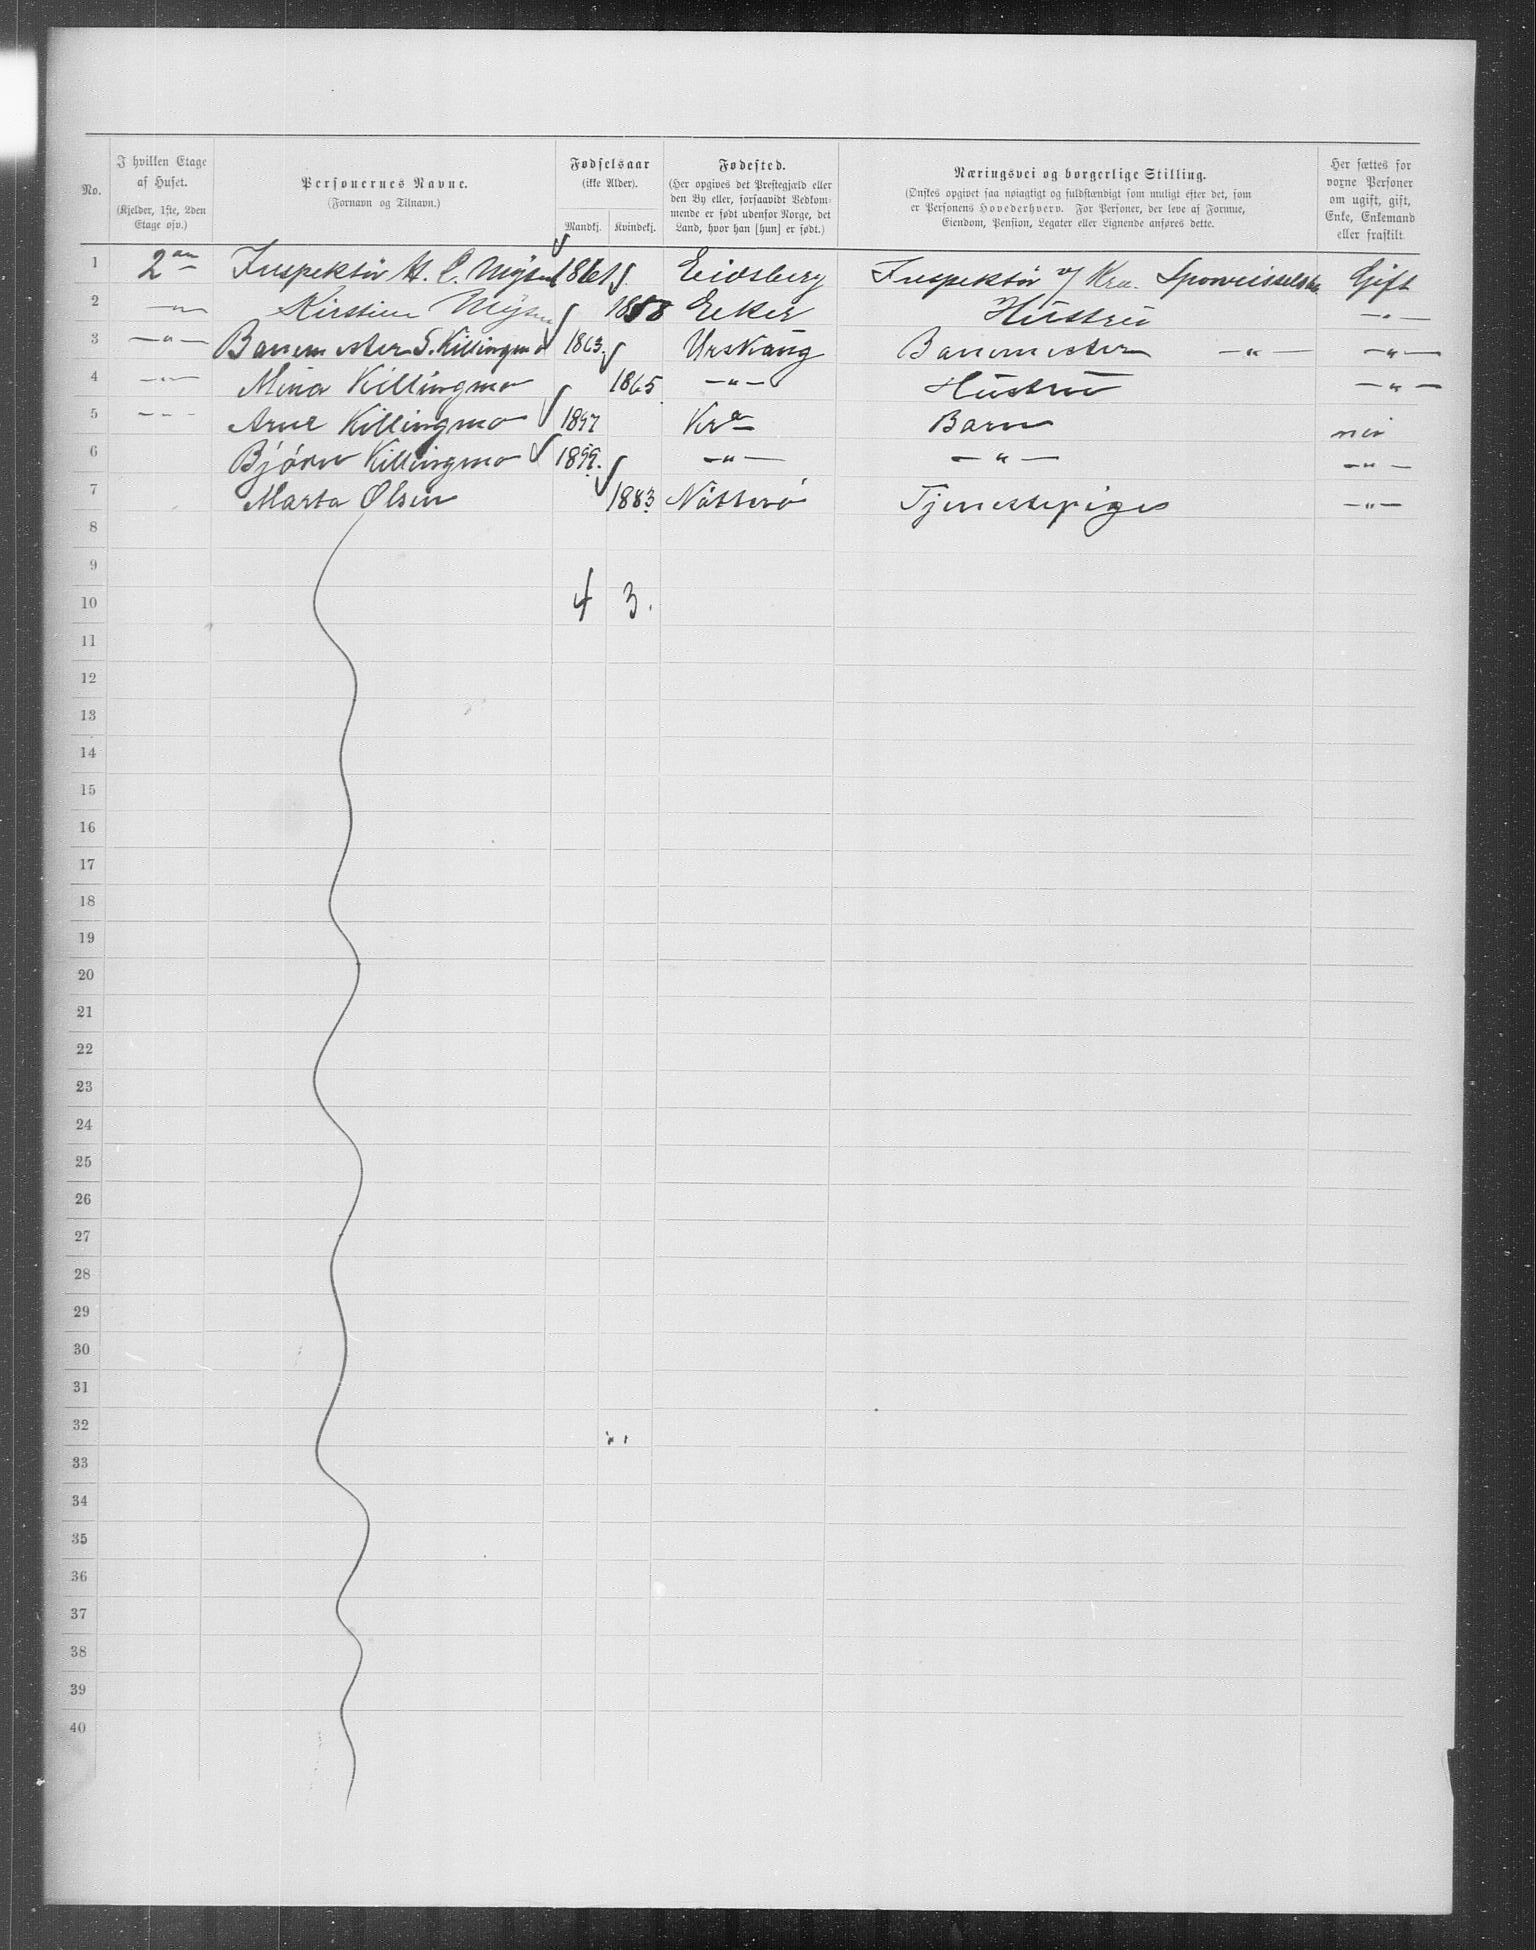 No.
I hvilken Etage af Huset.
(Kjelder, 1ste, 2den Etage osv.)
Personernes Navne.
(Fornavn og Tilnavn.)
Fødselsaar
(ikke Alder).
Mandkj. Kvindekj.
Fødested.
(Her opgives det Prestegjæld eller
den By eller, forsaavidt Vedkom-
mende er født udenfor Norge, det
Land, hvor han [hun] er født.)
Næringsvei og borgerlige Stilling.
(Ønskes opgivet saa nøiagtigt og fuldstændigt som muligt efter det, som
er Personens Hovederhverv. For Personer, der leve af Formue,
Eiendom, Pension, Legater eller Lignende anføres dette.
Her sættes for
voxne Personer
om ugift, gift,
Enke, Enkemand
eller fraskilt
1 2en Inspektör H. C. Mysen 1861 Eidsberg Inspektör v/ Kra. Sporveisselsk. Gift
2 —"— Kirstine Mysen 1858 Eeker Hustru —"—
3 —"— Banemester S. Killingmo 1863 Urskaug Banemester —"— —"—
4 —"— Mina Killingmo 1865 —"— Hustru —"—
5 —"— Arne Killingmo 1897 Kra Barn nei
6 Bjørn Killingmo 1899. —"— —"— —"—
7 Marta Olsen 1883 Nötterö Tjenestepige —"—
8
9
10 4 3.
11
12
13
14
15
16
17
18
19
20
21
22
23
24
25
26
27
28
29
30
31
32
33
34
35
36
37
38
39
40